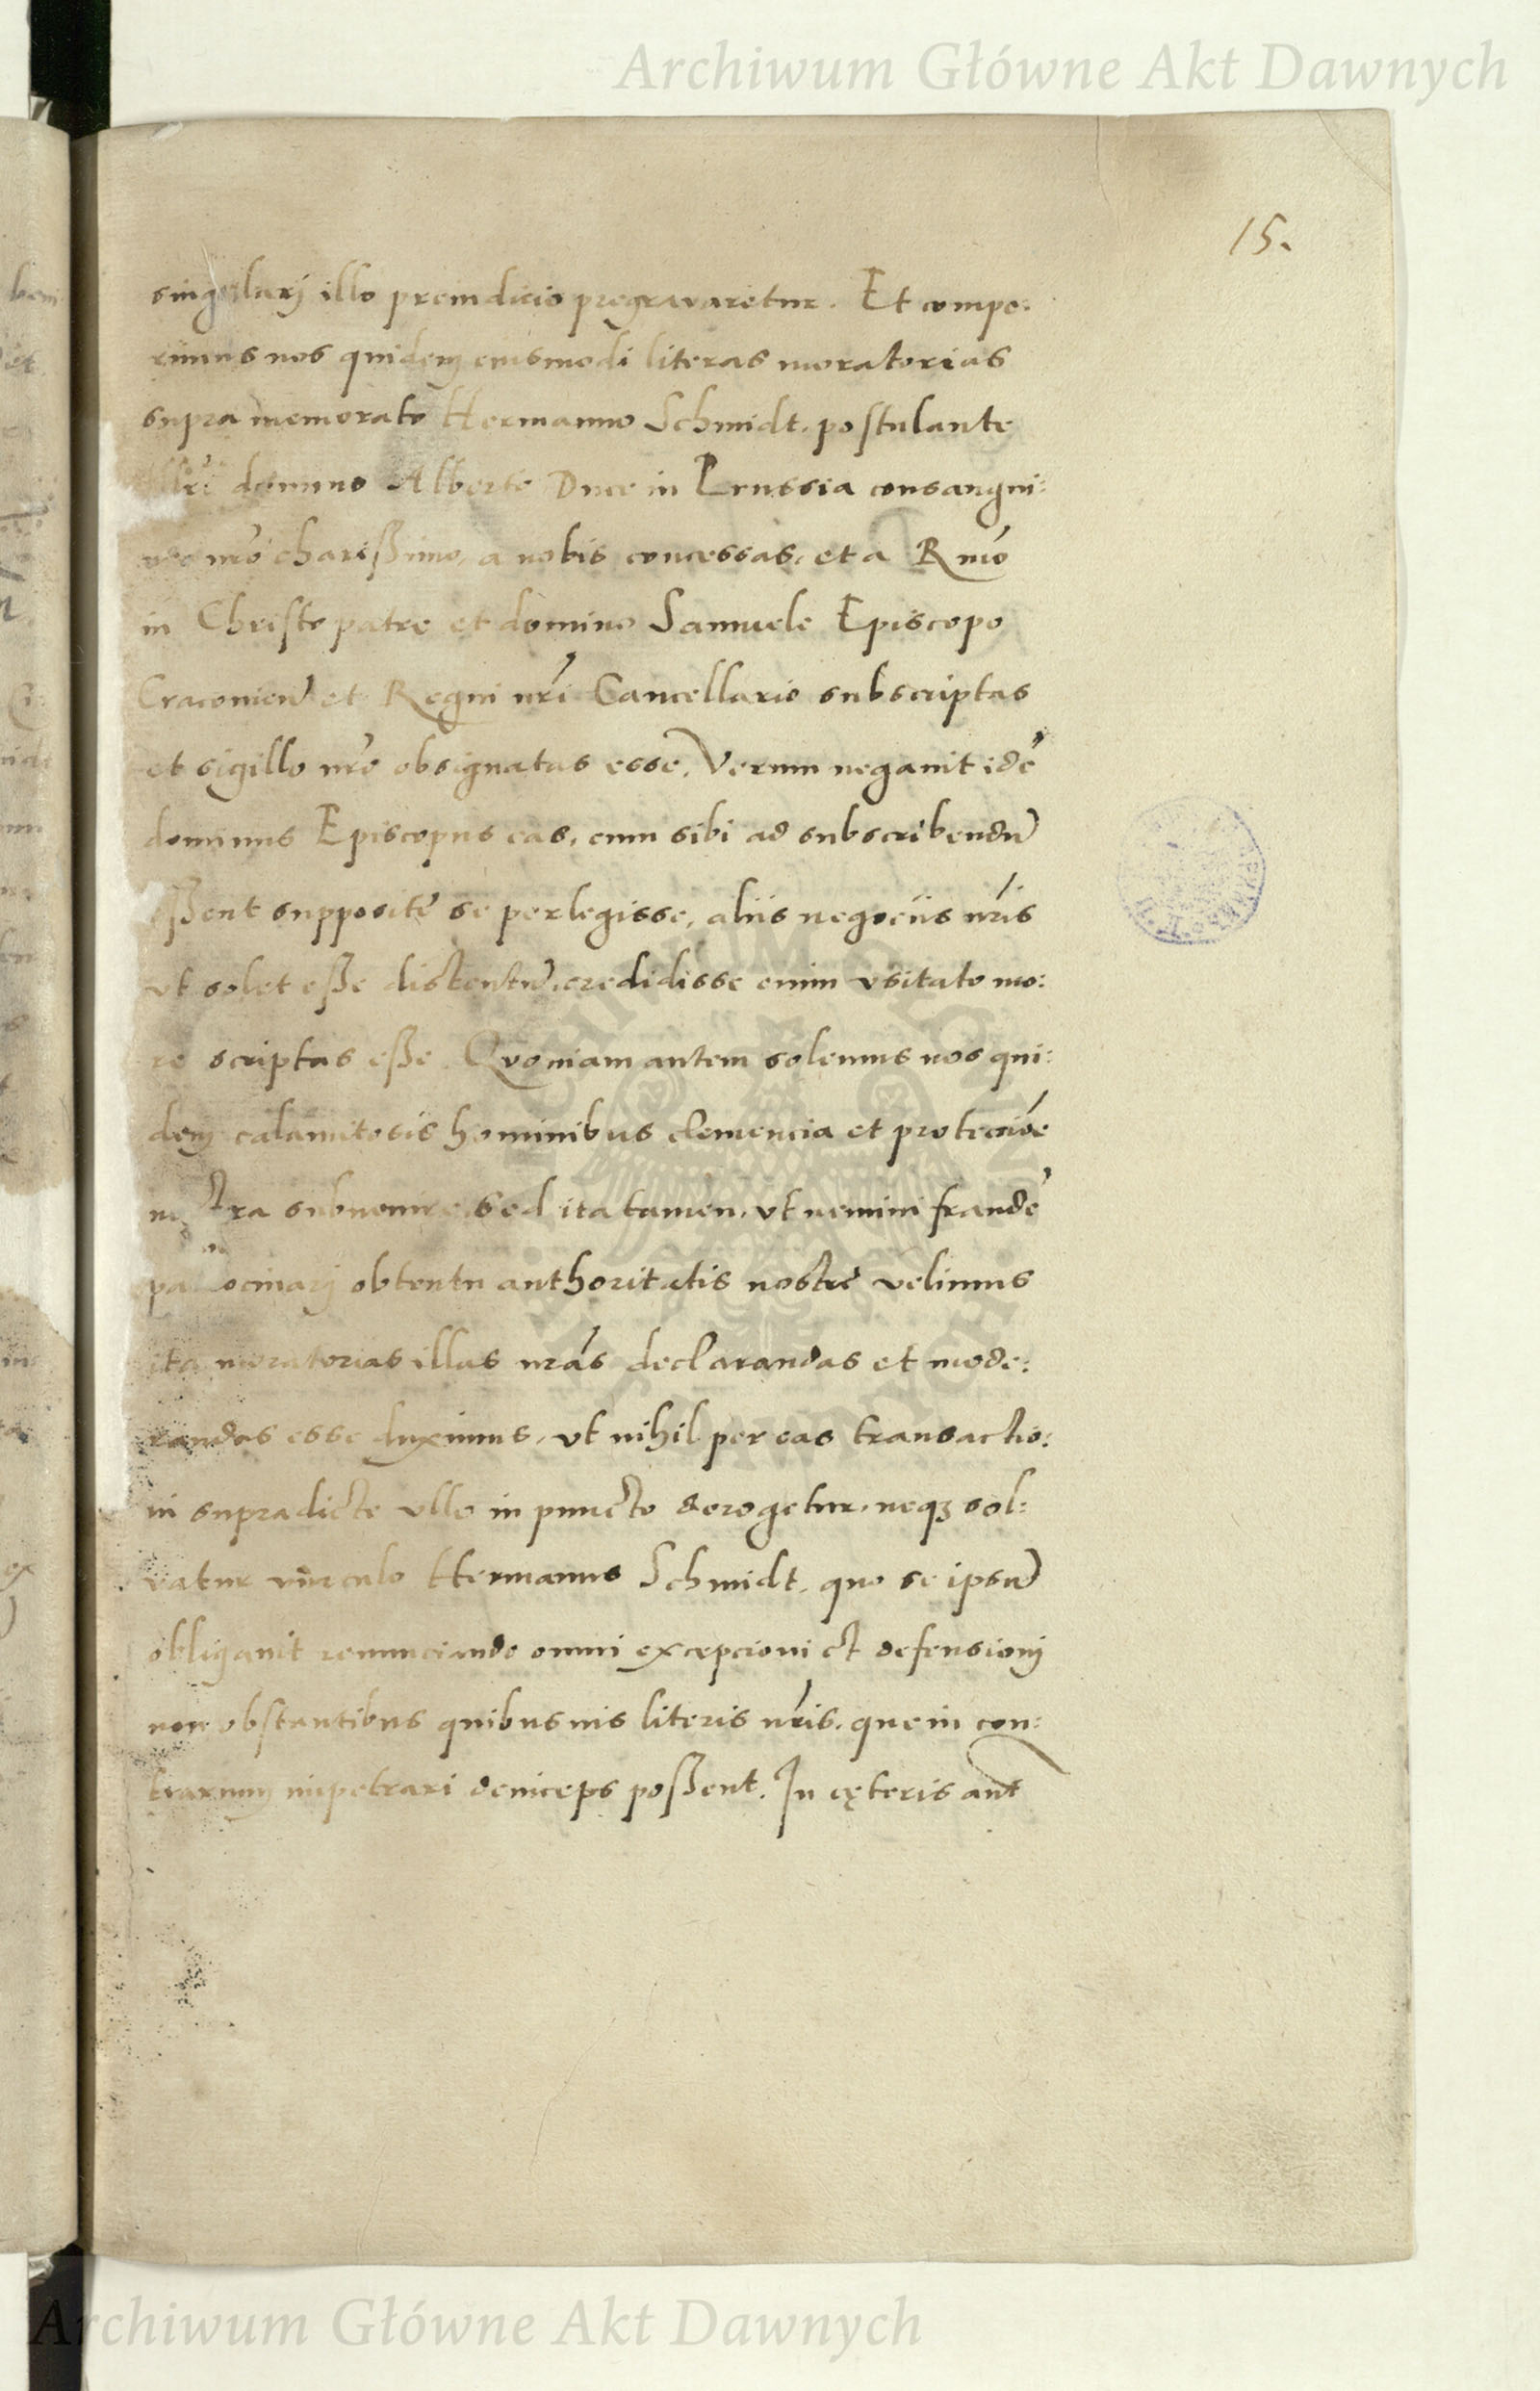 Archiwum Główne Akt Dawnych
15.
singulari illo preiudicio pregravaretur. Et compe:
rimus nos quidem eiusmodi literas moratorias
supra memorato Hermanno Schmidt, postulante
Illri domino Alberto Duce in Prussia consangui:
neo nr̃o charißimo, a nobis concessas, et a Rmo
in Christo patre et domino Samuele Episcopo
Cracovien̄ et Regni nr̃i Cancellario subscriptas
et sigillo nr̃o obsignatas esse. Verum negauit idē
dominus Episcopus eas, cum sibi ad subscribendū
eßent supposite se perlegisse, aliis negociis nr̃is
vt solet eße distentū, credidisse enim vsitato mo:
re scriptas eße. Quoniam autem solemus nos qui:
dem calamitosis hominibus clemencia et protecciōe
nostra subuenire, sed ita tamen, vt nemini fraudē
patrocinari obtentu authoritatis nostre velimus
ita moratorias illas nr̃as declarandas et mode:
randas esse duximus, vt nihil per eas transactio:
ni supradicte vllo in puncto derogetur, neqʒ sol:
vatur vinculo Hermanus Schmidt, quo se ipsū
obligauit renunciando omni excepcioni et defensioni
non obstantibus quibusuis literis nr̃is, que in con:
trarium impetrari deinceps poßent. In cęteris aut̄
Archiwum Główne Akt Dawnych